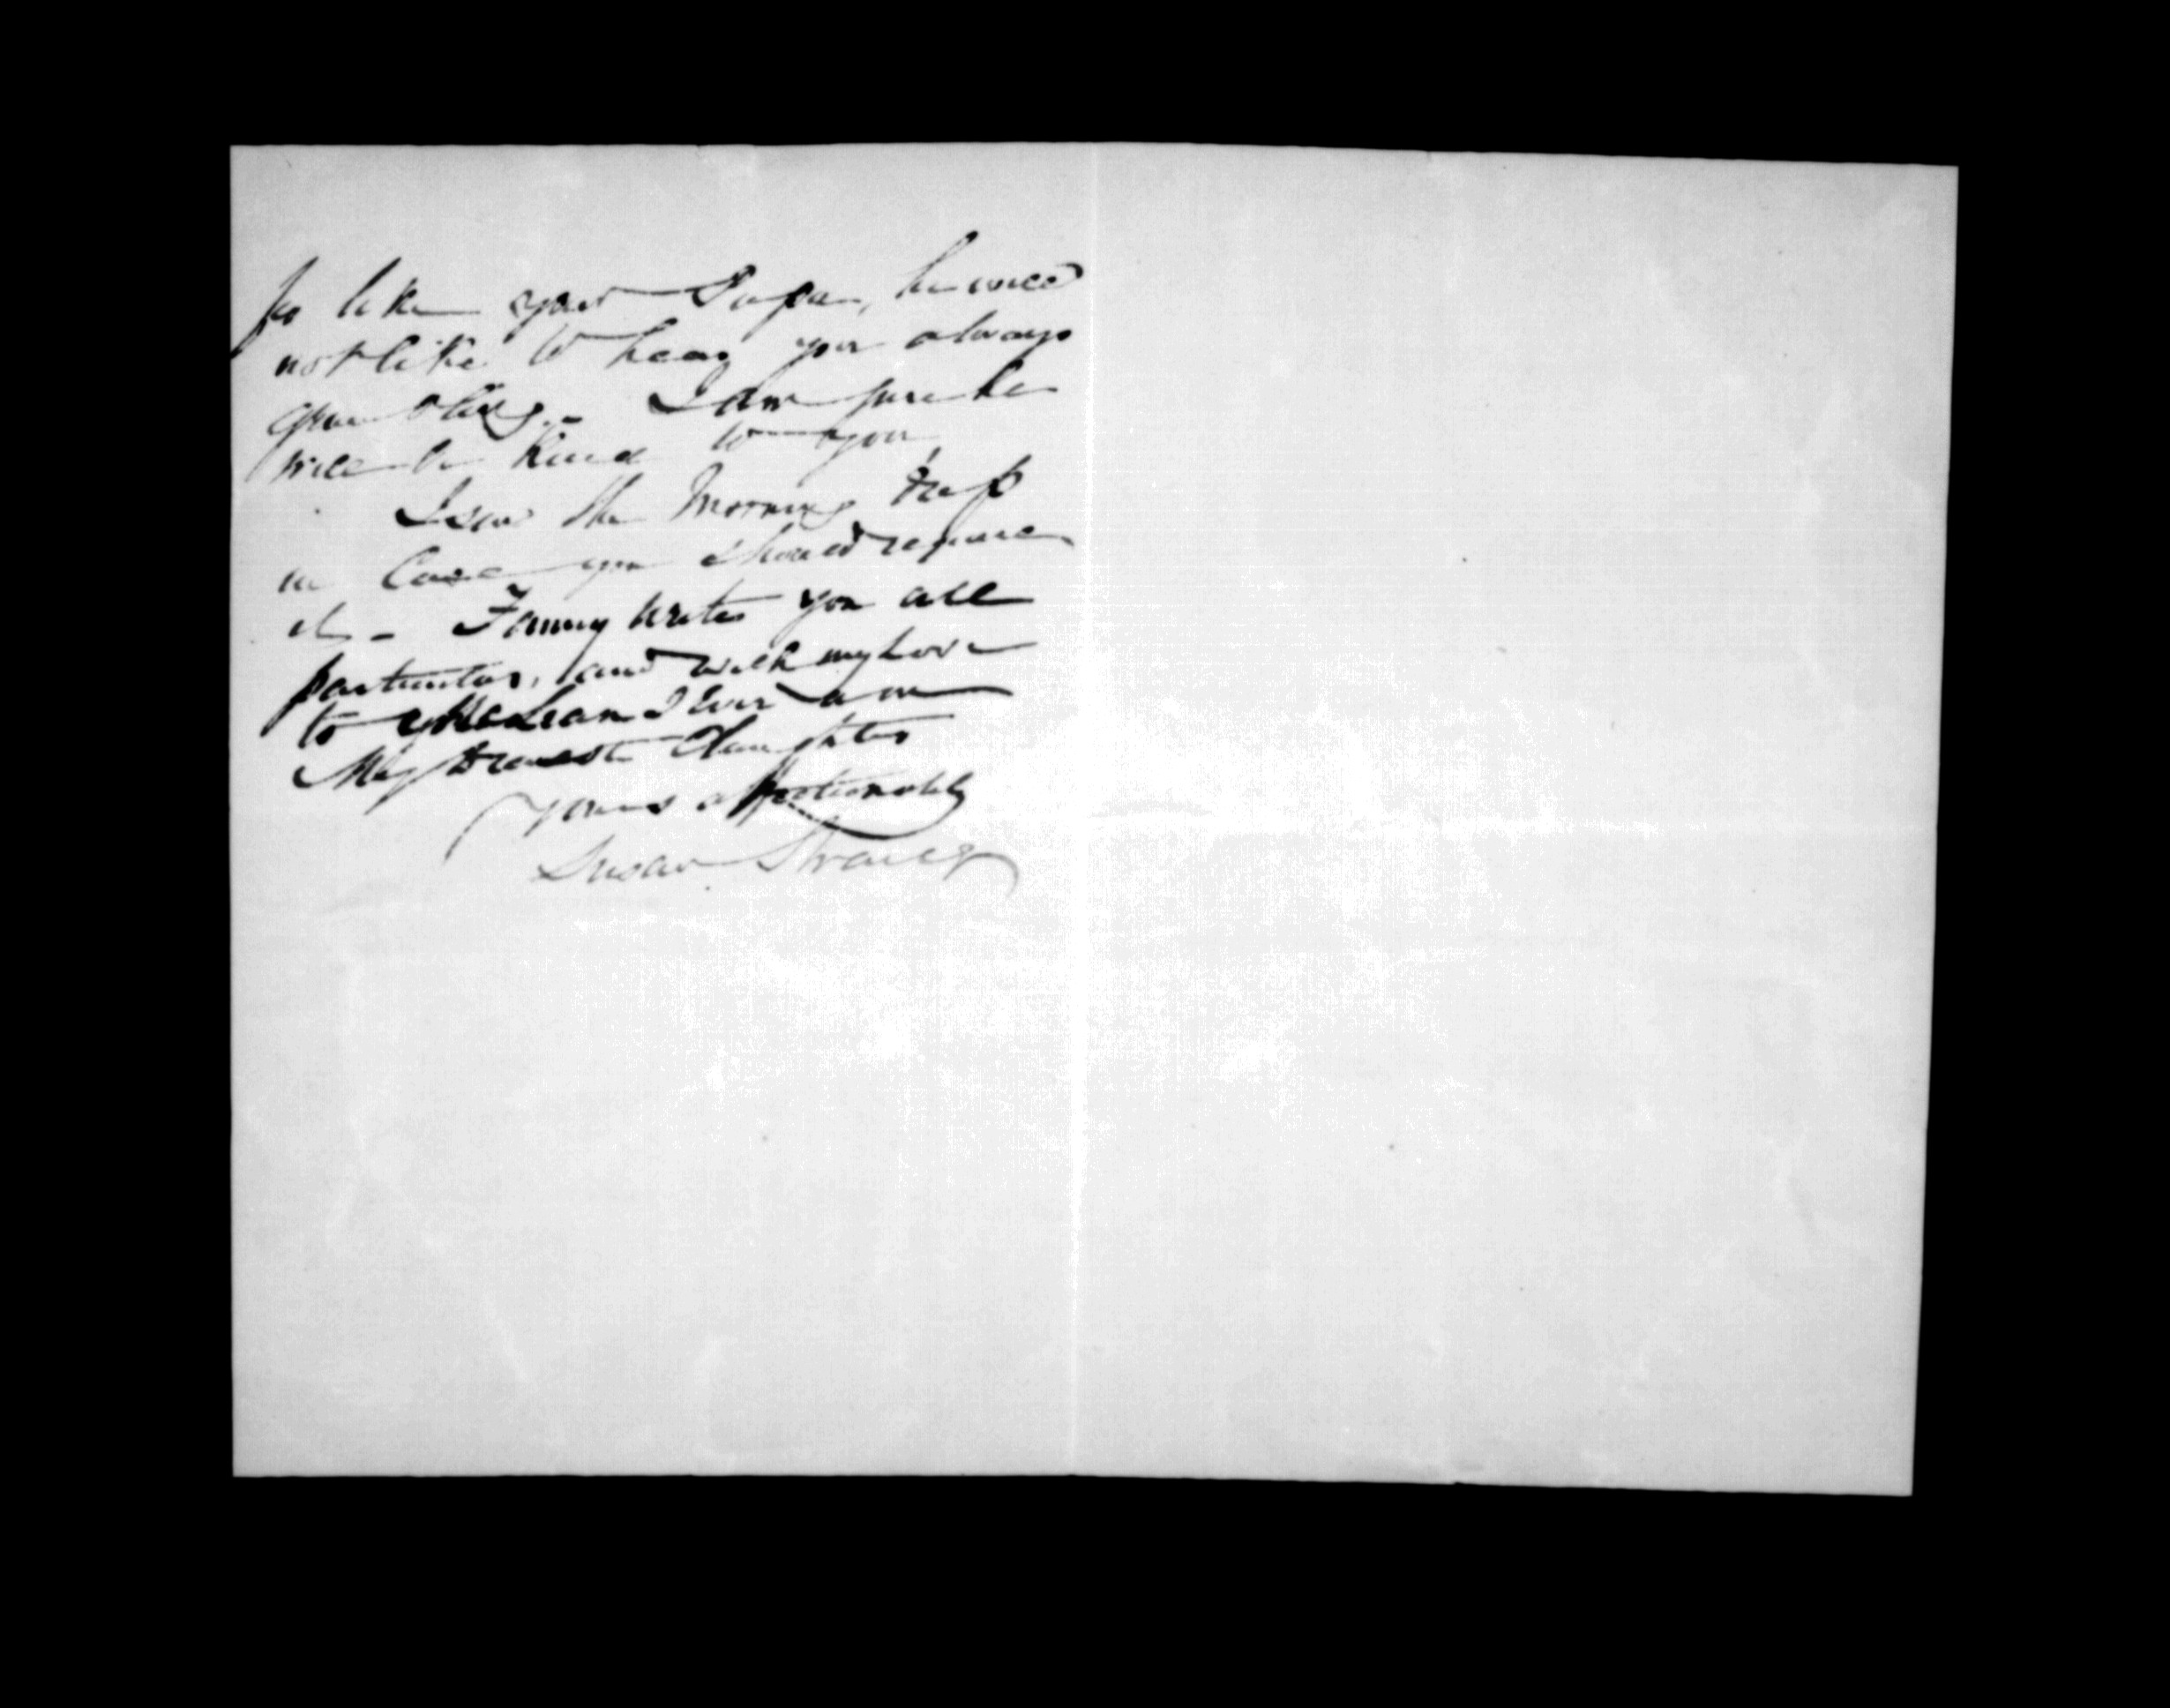 so like your Papa, he will
not like to hear you always
grumbling. - I am sure he
will be kind to you,
the Morning
in Case you should require
it - Fanny writes you all
particulars, and with my Love
to McLean I Ever am
My Dearest Daughter
yours affectionately
Susan Strang